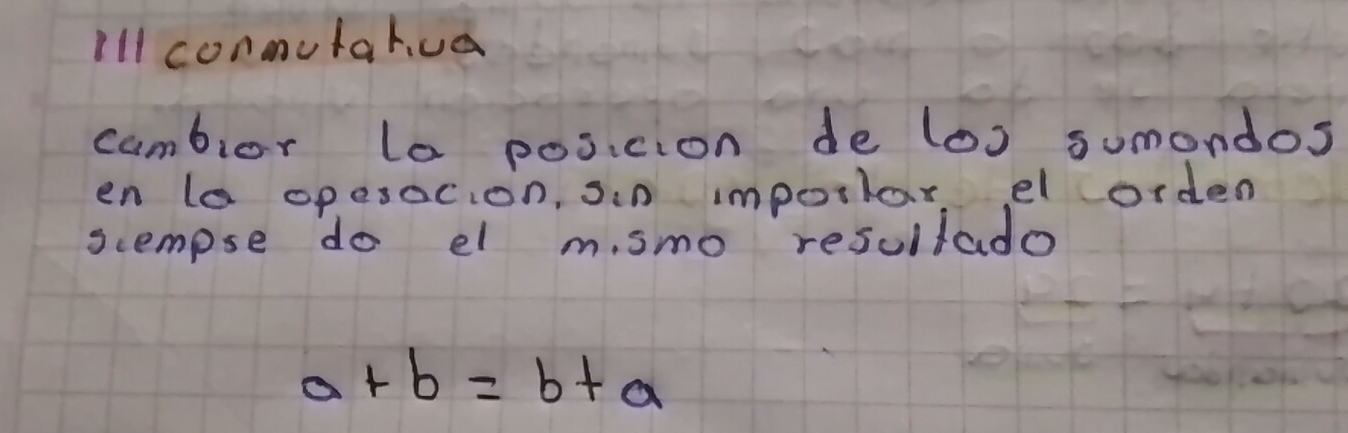 III conmutativa
cambiar la posicion de los sumandos
en la operacion, sin importar el orden
siempre da el mismo resultado
a + b = b + a